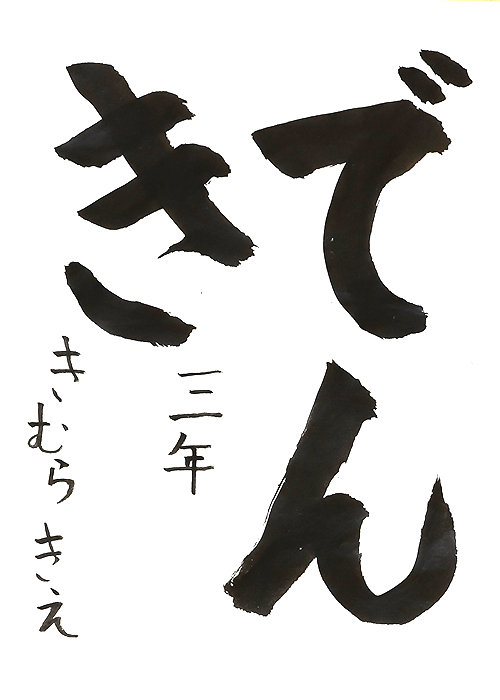 でん
き
三年
きむら きえ